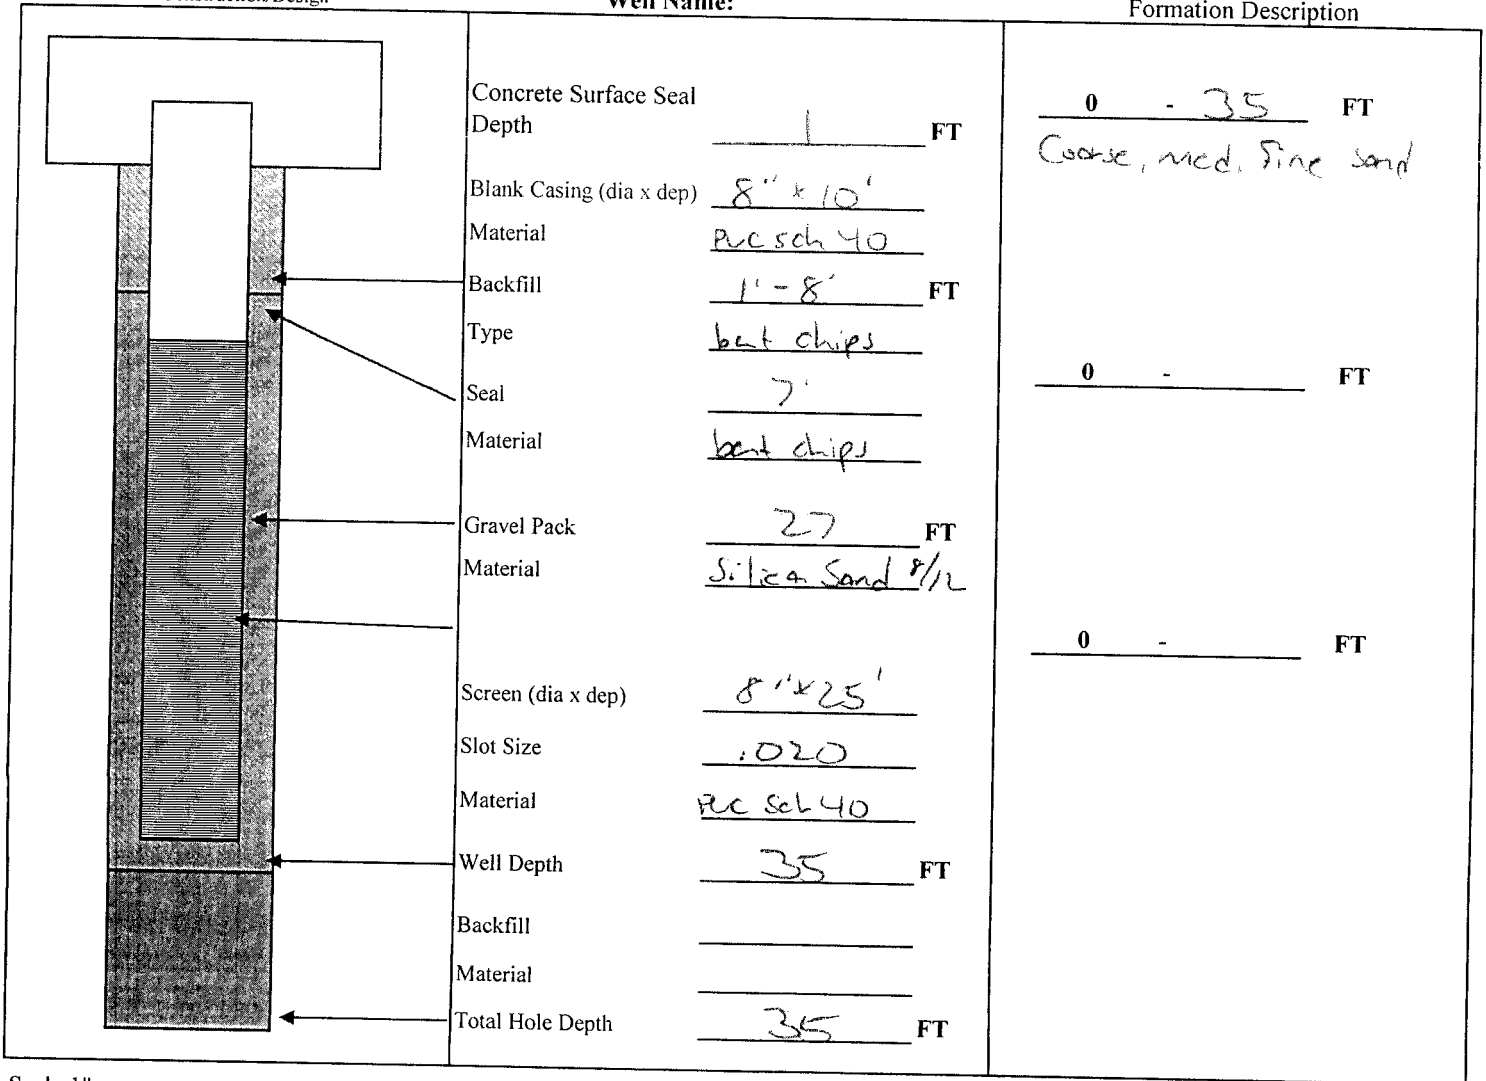 Construction/Design
Well Name:
Formation Description
Concrete Surface Seal
Depth 1 FT
Blank Casing (dia x dep) 8" x 10'
Material PVC sch 40
Backfill 1' - 8' FT
Type bent chips
Seal 7'
Material bent chips
Gravel Pack 27 FT
Material Silica Sand 8/12
Screen (dia x dep) 8" x 25'
Slot Size .020
Material PVC Sch 40
Well Depth 35 FT
Backfill
Material
Total Hole Depth 35 FT
0 - 35 FT
Coarse, med, fine sand
0 - FT
0 - FT